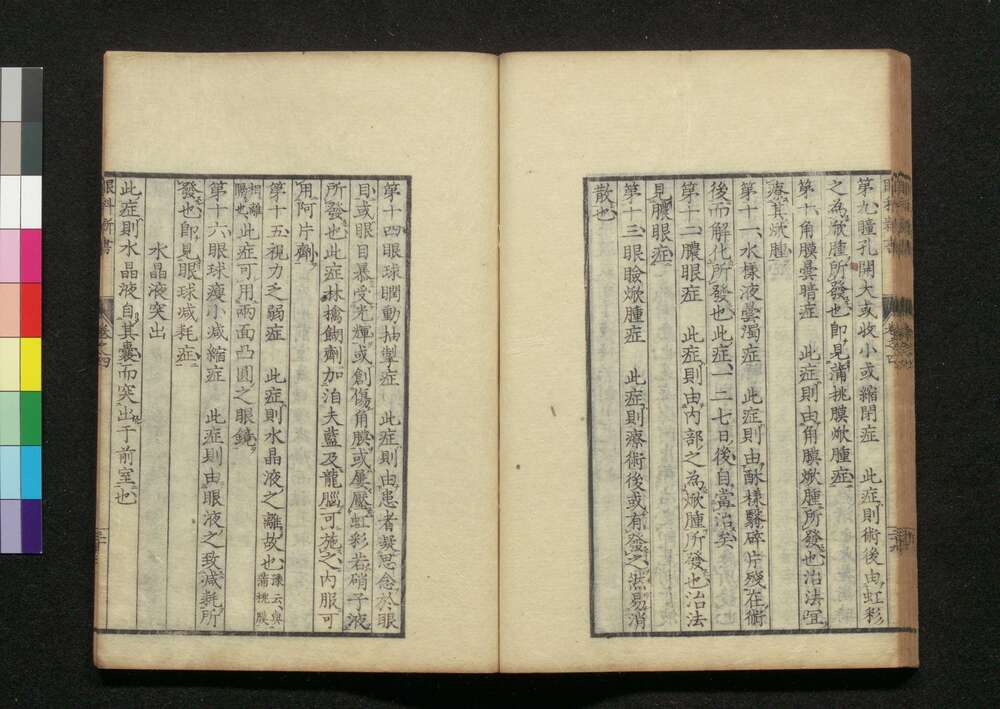 第九瞳孔開大或收小或縮閉症　此症則術後由虹彩
之為焮腫所發也即見蒲桃膜焮腫症
第十角膜曇暗症　此症則由角膜焮腫所發也治法宜
療其焮腫
第十一水樣液曇濁症　此症則由酥樣翳碎片殘在術
後而解化所發也此症一二七日後自當治矣
第十二膿眼症　此症則由內部之為焮腫所發也治法
見膿眼症
第十三眼瞼焮腫症　此症則療術後或有發之然易消
散也
第十四眼球瞤動抽掣症　此症則由患者凝思念於眼
目或眼目暴受光輝或創傷角膜或屢壓虹彩若硝子液
所發也此症林檎餬劑加泊夫藍及龍腦可施之內服可
用阿片劑
第十五視力乏弱症　此症則水晶液之離故也
相離
腸也
此症可用兩面凸圓之眼鏡
第十六眼球瘦小減縮症　此症則由眼液之致減耗所
發也即見眼球減耗症
水晶液突出
此症則水晶液自其囊而突出于前室也
眼科新書
卷之四